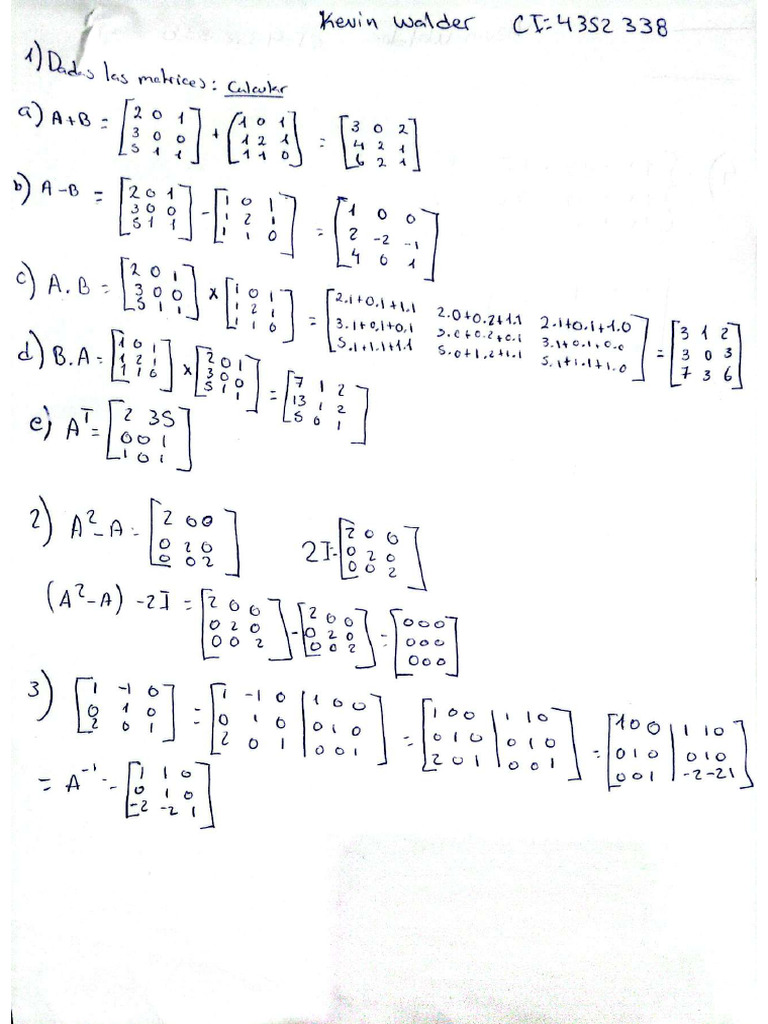 Kevin Walder CI=4352338
1) Dadas las matrices: Calcular
a) A+B = [2 0 1; 3 0 0; 5 1 1] + [1 0 1; 1 2 1; 1 1 0] = [3 0 2; 4 2 1; 6 2 1]
b) A-B = [2 0 1; 3 0 0; 5 1 1] - [1 0 1; 1 2 1; 1 1 0] = [1 0 0; 2 -2 -1; 4 0 1]
c) A.B = [2 0 1; 3 0 0; 5 1 1] x [1 0 1; 1 2 1; 1 1 0] = [2.1+0.1+1.1 2.0+0.2+1.1 2.1+0.1+1.0; 3.1+0.1+0.1 3.0+0.2+0.1 3.1+0.1,0.0; 5.1+1.1+1.1 5.0+1.2+1.1 5.1+1.1+1.0] = [3 1 2; 3 0 3; 7 3 6]
d) B.A = [1 0 1; 1 2 1; 1 1 0] x [2 0 1; 3 0 0; 5 1 1] = [7 1 2; 13 1 2; 5 0 1]
e) A^T = [2 3 5; 0 0 1; 1 0 1]
2) A²-A = [2 0 0; 0 2 0; 0 0 2] 2I = [2 0 0; 0 2 0; 0 0 2]
(A²-A) -2I = [2 0 0; 0 2 0; 0 0 2] - [2 0 0; 0 2 0; 0 0 2] = [0 0 0; 0 0 0; 0 0 0]
3) [1 -1 0; 0 1 0; 2 0 1] = [1 -1 0 | 1 0 0; 0 1 0 | 0 1 0; 2 0 1 | 0 0 1] = [1 0 0 | 1 1 0; 0 1 0 | 0 1 0; 2 0 1 | 0 0 1] = [1 0 0 | 1 1 0; 0 1 0 | 0 1 0; 0 0 1 | -2 -2 1]
= A⁻¹ = [1 1 0; 0 1 0; -2 -2 1]